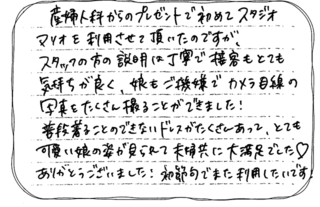 産婦人科からのプレゼントで初めてスタジオ
マリオを利用させて頂いたのですが、
スタッフの方の説明は丁寧で接客もとても
気持ちが良く、娘もご機嫌でカメラ目線の
写真をたくさん撮ることができました!
普段着ることのできないドレスがたくさんあって、とても
可愛い娘の姿が見られて夫婦共に大満足でした♡
ありがとうございました!初節句でまた利用したいです!